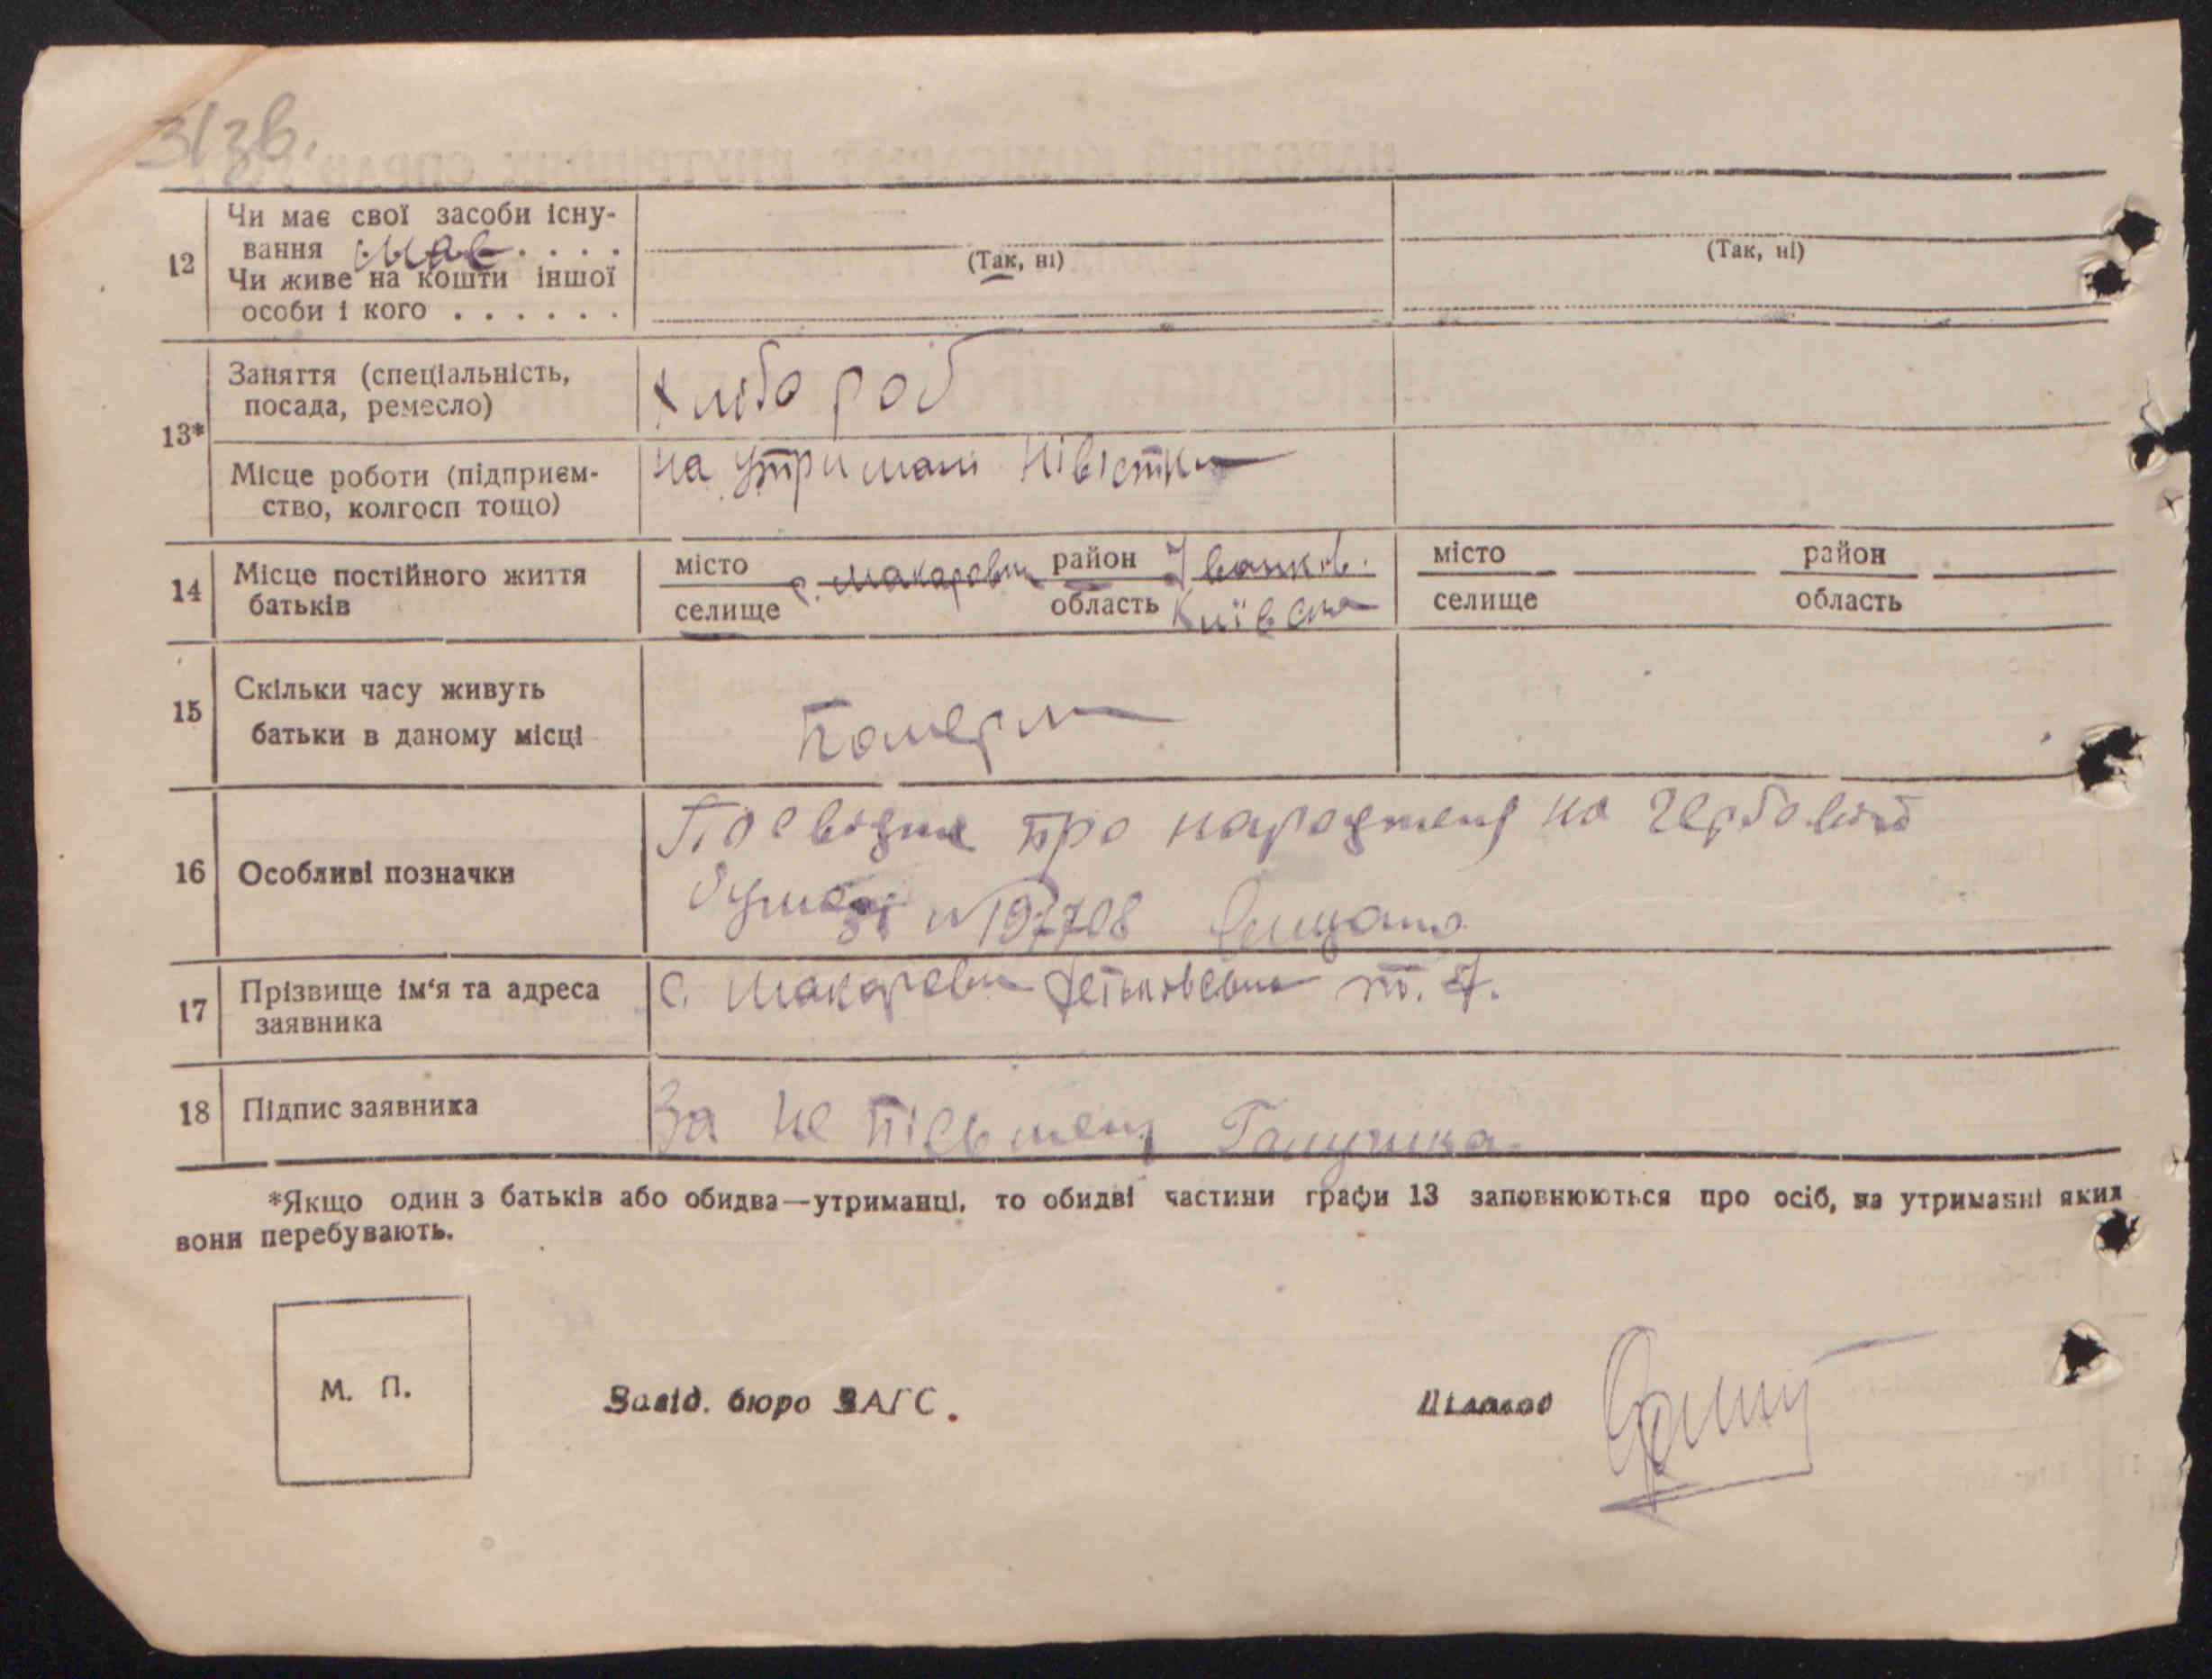 31зв.
12 Чи має свої засоби існу-
вання має . . . .
(Так, ні) (Так, ні)
Чи живе на кошти іншої
особи і кого . . . . . .
13* Заняття (спеціальність,
посада, ремесло) Хлібороб
Місце роботи (підприєм-
ство, колгосп тощо) на утримані невістки
14 Місце постійного життя
батьків
місто с. Макаровка район Іванків. місто район
селище область Київська селище область
15 Скільки часу живуть
батьки в даному місці
Померли
16 Особливі позначки
Посвідке про народженя на гербовій
бумазі №197708
17 Прізвище ім'я та адреса
заявника
с. Макаровка т. Я.
18 Підпис заявника За не письмену Галушка
*Якщо один з батьків або обидва—утриманці, то обидві частини графи 13 заповнюються про осіб, на утриманні яких
вони перебувають.
М. П.
Завід. бюро ЗАГС. Діловод